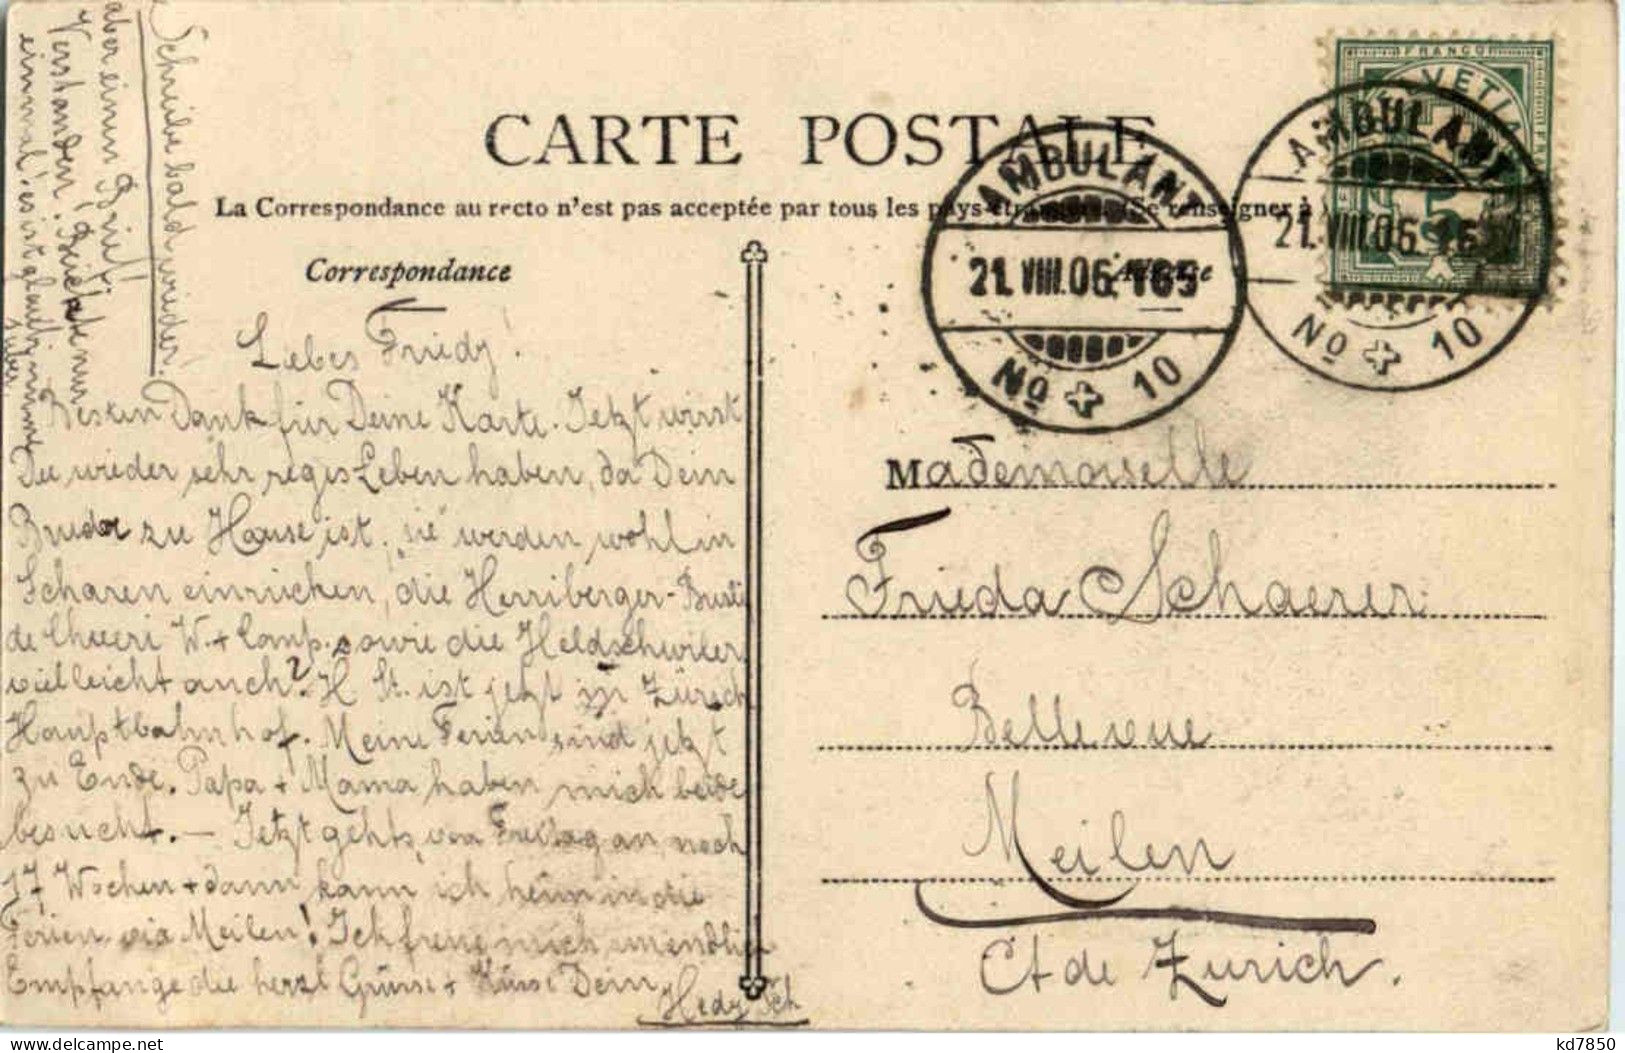 CARTE POSTALE
La Correspondance au recto n'est pas acceptée par tous les pays étrangers. (Se renseigner à
Correspondance
FRANCO
AMBULANT
21. VIII. 06. 165
No 10
AMBULANT
21. VIII. 06. 16
No 10
Schreibe bald wieder!
aber einen Brief!
Verstanden!
einmal
Liebes Friedy!
Besten Dank für Deine Karte. Jetzt wirst
Du wieder sehr reges Leben haben, da Dein
Bruder zu Hause ist, sie werden wohl in
Scharen einrücken, die
W. + Comp. sowie die
vielleicht auch? H. St. ist jetzt in Zürich
Hauptbahnhof. Meine Ferien sind jetzt
zu Ende. Papa + Mama haben mich beide
besucht. — Jetzt gehts, von Freitag an noch
17 Wochen + dann kann ich heim in die
Ferien via Meilen! Ich freue mich unendlich
Empfange die herzl Grüsse + Küsse Dein
Hedy Sch
Mademoiselle
Frieda Schaerer
Bellevue
Meilen
Ct de Zurich.
kd7850